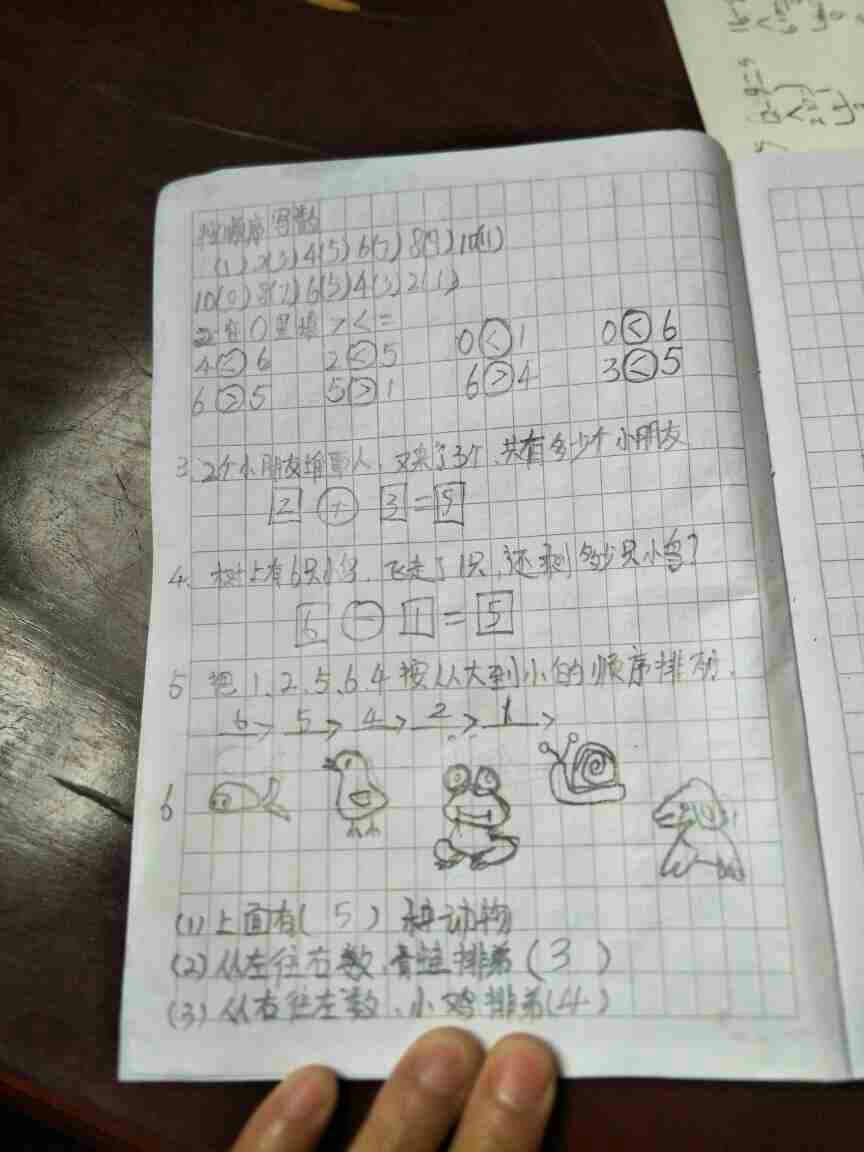 按顺序写数
(1)2(3)4(5)6(7)8(9)10(11)
10(9)8(7)6(5)4(3)2(1)
2 在○里填 > < =
4<6 2<5 0<1 0<6
6>5 5>1 6>4 3<5
3 2个小朋友 人,又来了3个,共有多少个小朋友
2+3=5
4. 树上有6只小鸟,飞走了1只,还剩多少只小鸟?
6-1=5
5 把1、2、5、6、4按从大到小的顺序排列.
6>5>4>2>1>
6
(1)上面有(5)种动物
(2)从左往右数,青蛙排第(3)
(3)从右往左数,小鸡排第(4)
12-9=3